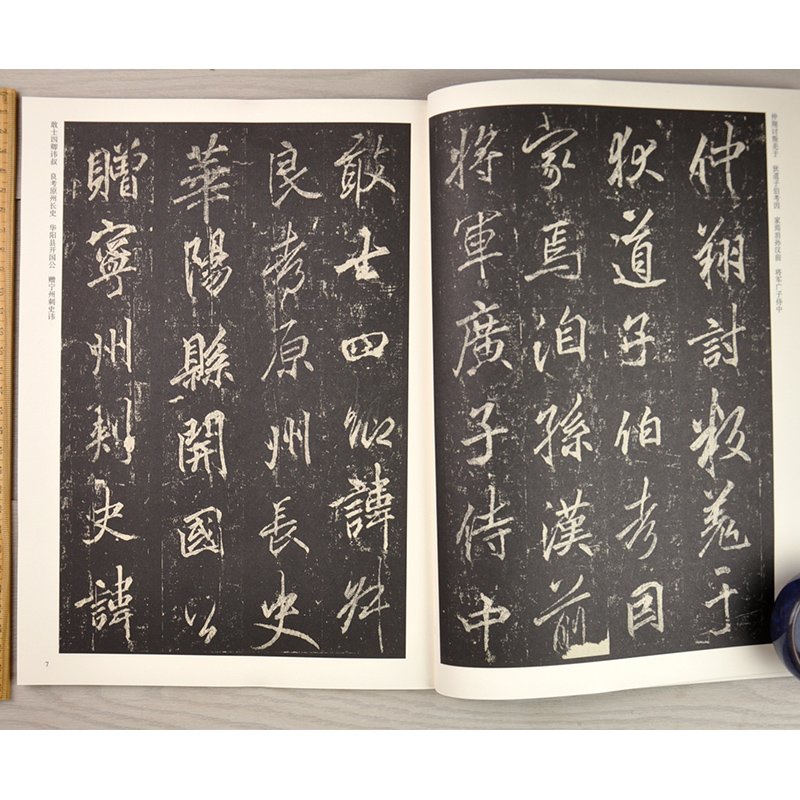 仲翔讨叛羌于 狄道子伯考因 家焉洎孙汉前 将军广子侍中
仲翔討叛羌于
狄道子伯考因
家焉洎孫漢前
將軍廣子侍中
敢士四卿諱叔
良考原州長史
華陽縣開國公
贈寧州刺史諱
敢士四卿讳叔 良考原州长史 华阳县开国公 赠宁州刺史讳
7